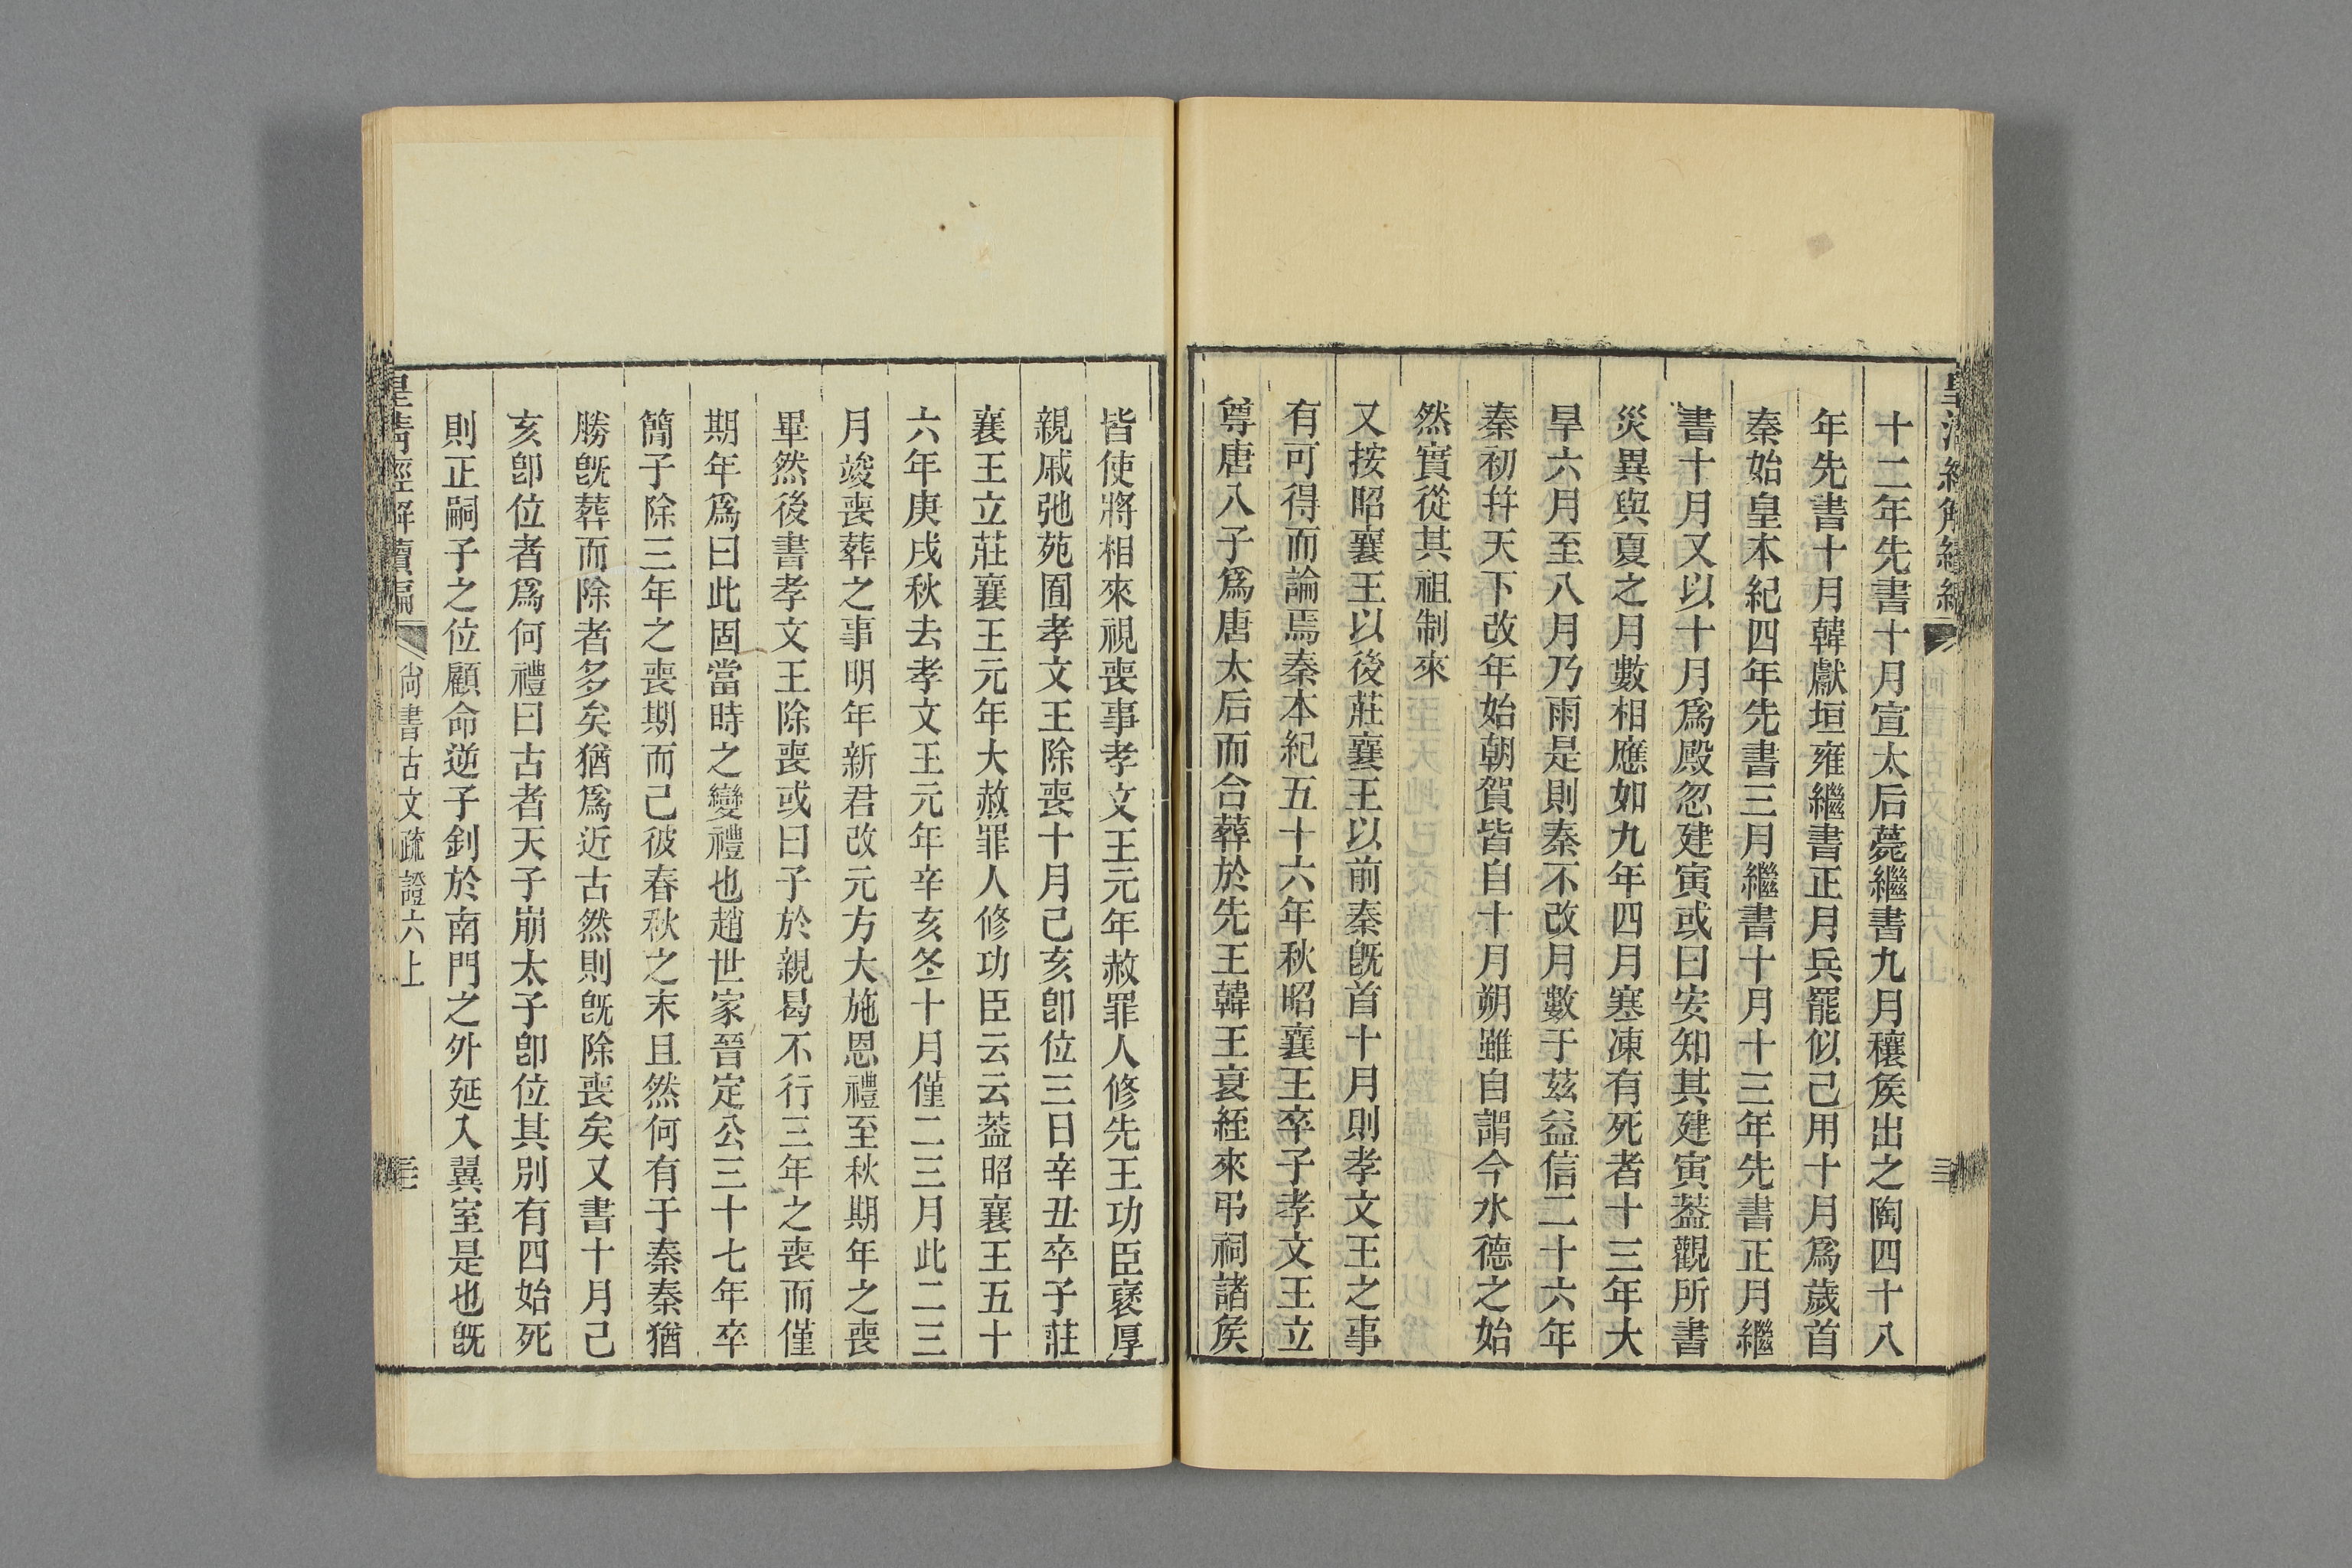 十二年先書十月宣太后薨繼書九月穰矦出之陶四十八
年先書十月韓獻垣雍繼書正月兵罷似己用十月爲歲首
秦始皇本紀四年先書三月繼書十月十三年先書正月繼
書十月又以十月爲殿忽建寅或曰安知其建寅葢觀所書
災異與夏之月數相應如九年四月寒凍有死者十三年大
旱六月至八月乃雨是則秦不改月數于茲益信二十六年
秦初幷天下改年始朝賀皆自十月朔雖自謂今水德之始
然實從其祖制來
又按昭襄王以後莊襄王以前秦旣首十月則孝文王之事
有可得而論焉秦本紀五十六年秋昭襄王卒子孝文王立
尊唐八子爲唐太后而合葬於先王韓王衰絰來弔祠諸矦
皆使將相來視喪事孝文王元年赦罪人修先王功臣襃厚
親戚弛苑囿孝文王除喪十月己亥卽位三日辛丑卒子莊
襄王立莊襄王元年大赦罪人修功臣云云葢昭襄王五十
六年庚戌秋去孝文王元年辛亥冬十月僅二三月此二三
月竣喪葬之事明年新君改元方大施恩禮至秋期年之喪
畢然後書孝文王除喪或曰子於親曷不行三年之喪而僅
期年爲曰此固當時之變禮也趙世家晉定公三十七年卒
簡子除三年之喪期而己彼春秋之末且然何有于秦秦猶
勝旣葬而除者多矣猶爲近古然則旣除喪矣又書十月己
亥卽位者爲何禮曰古者天子崩太子卽位其別有四始死
則正嗣子之位顧命逆子釗於南門之外延入翼室是也旣
皇清經解續編
尚書古文疏證六上